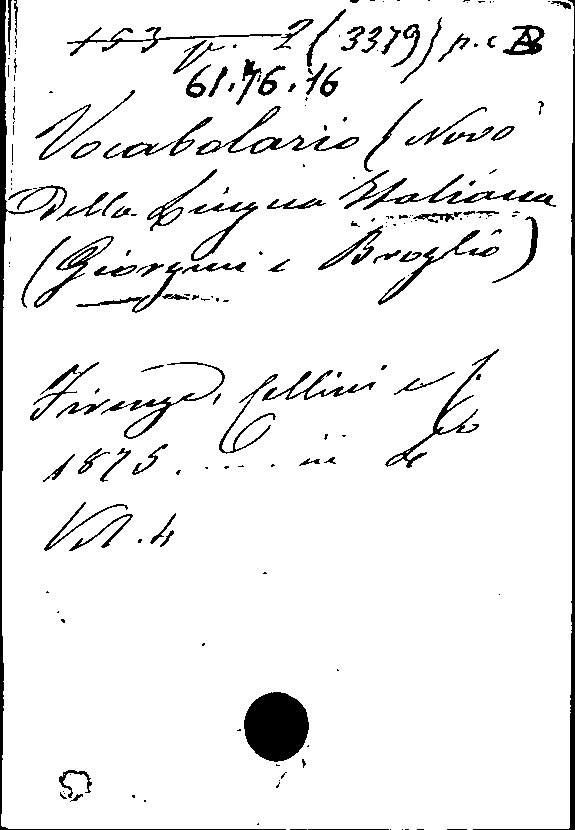 153 p. 2 (3379) p. c B
61.76.16
Vocabolario (Novo
Della Lingua Italiana
(Giorgini e Broglio)
Firenze, Cellini e C.
1875 . . . . . . in 4to
Vol. 4